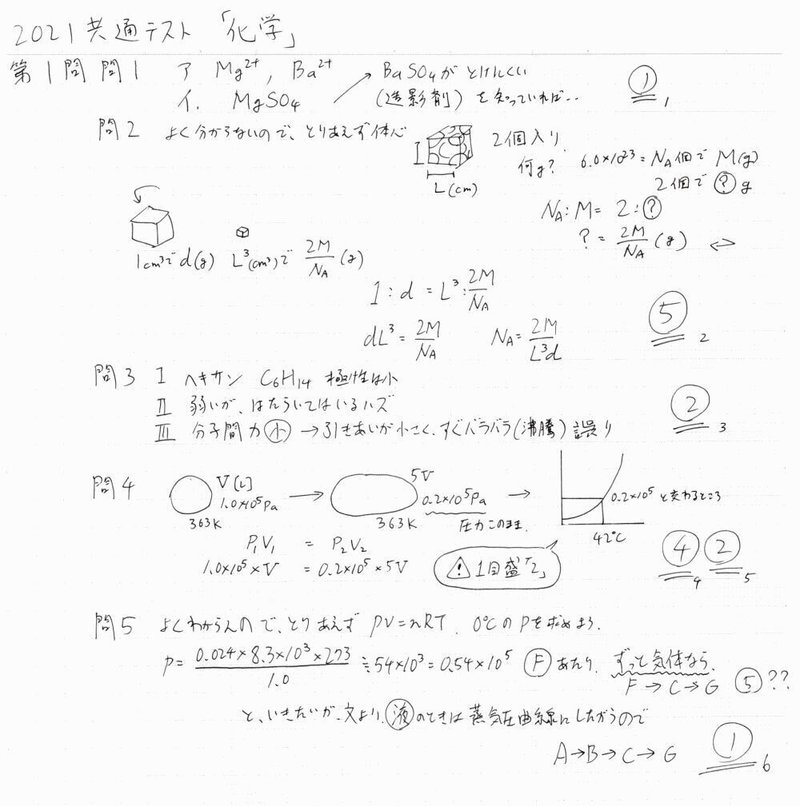 2021共通テスト「化学」
第1問 問1 ア Mg²⁺, Ba²⁺ → BaSO₄がとけにくい
イ. MgSO₄ (造影剤)を知っていれば‥ ① 1
問2 よく分からないので、とりあえず体心 2個入り
何g? 6.0×10²³=NA個で M(g)
L(cm) 2個で ? g
NA:M=2:?
?=2M/NA (g) ⇔
1cm³で d(g) L³(cm³)で 2M/NA (g)
1:d=L³:2M/NA
dL³=2M/NA NA=2M/L³d ⑤ 2
問3 I ヘキサン C₆H₁₄ 極性は小
II 弱いが、はたらいてはいるハズ ② 3
III 分子間力小→引きあいが小さく、すぐバラバラ(沸騰)誤り
問4 V[L] 1.0×10⁵Pa 363K → 5V 0.2×10⁵Pa 363K 圧力このまま. → 0.2×10⁵と交わるところ
42℃
P₁V₁ = P₂V₂
1.0×10⁵×V = 0.2×10⁵×5V ⚠1目盛「2」 ④ 4 ② 5
問5 よくわからんので、とりあえず PV=nRT. 0℃のPを求めよう.
P=0.024×8.3×10³×273/1.0 ≒54×10³=0.54×10⁵ Fあたり. ずっと気体なら
F→C→G ⑤??
と、いきたいが、文より、液のときは蒸気圧曲線にしたがうので
A→B→C→G ① 6